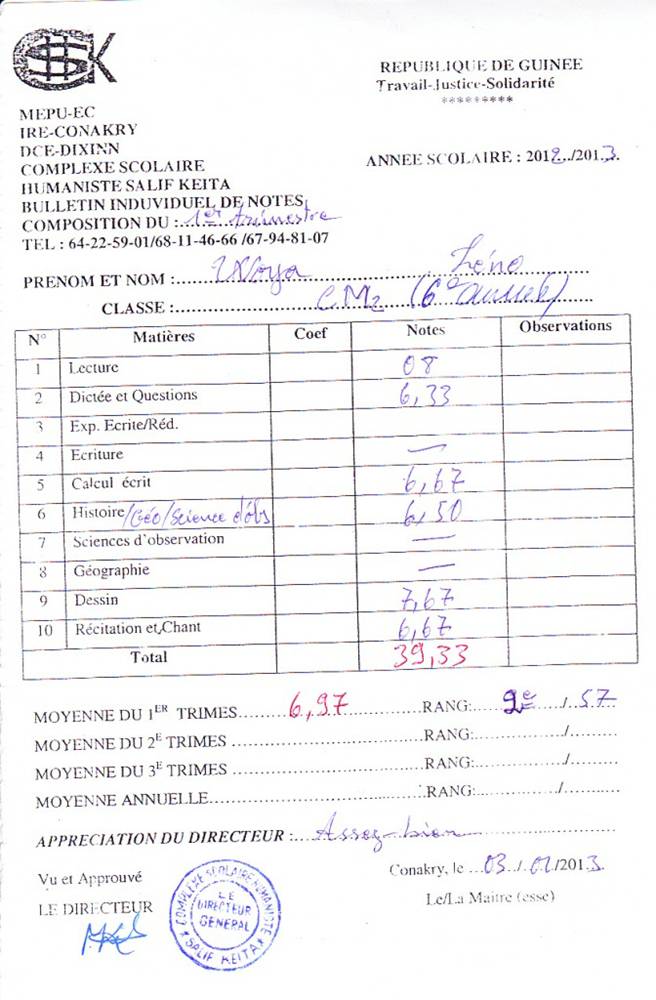 CHSK
REPUBLIQUE DE GUINEE
Travail-Justice-Solidarité
*********
MEPU-EC
IRE-CONAKRY
DCE-DIXINN
COMPLEXE SCOLAIRE
HUMANISTE SALIF KEITA
ANNEE SCOLAIRE : 2012../2013.
BULLETIN INDUVIDUEL DE NOTES
COMPOSITION DU :..1er trimestre
TEL : 64-22-59-01/68-11-46-66 /67-94-81-07
PRENOM ET NOM :.... Léno
CLASSE :.... CM2 (6e année)
N° Matières Coef Notes Observations
1 Lecture 08
2 Dictée et Questions 6,33
3 Exp. Ecrite/Réd.
4 Ecriture —
5 Calcul écrit 6,67
6 Histoire/Géo/Science d'obs 6,50
7 Sciences d'observation —
8 Géographie —
9 Dessin 7,67
10 Récitation et Chant 6,67
Total 39,33
MOYENNE DU 1ER TRIMES....6,97....RANG:....2e..../..57
MOYENNE DU 2E TRIMES ....RANG:..../....
MOYENNE DU 3E TRIMES ....RANG:..../....
MOYENNE ANNUELLE....RANG:..../....
APPRECIATION DU DIRECTEUR :....Assez-bien....
Vu et Approuvé
Conakry, le ...03./.01/2013.
LE DIRECTEUR
Le/La Maitre (esse)
COMPLEXE SCOLAIRE HUMANISTE
LE
DIRECTEUR
GENERAL
* SALIF KEITA *